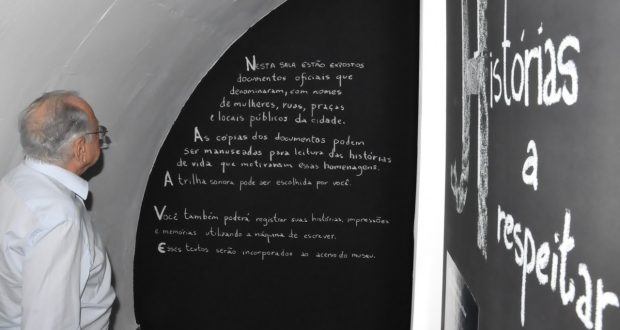 Nesta sala estão expostos
documentos oficiais que
denominaram, com nomes
de mulheres, ruas, praças
e locais públicos da cidade.
As cópias dos documentos podem
ser manuseadas para leitura das histórias
de vida que motivaram essas homenagens.
A trilha sonora pode ser escolhida por você.
Você também poderá registrar suas histórias, impressões
e memórias utilizando a máquina de escrever.
Esses textos serão incorporados ao acervo do museu.
Histórias
a
respeitar